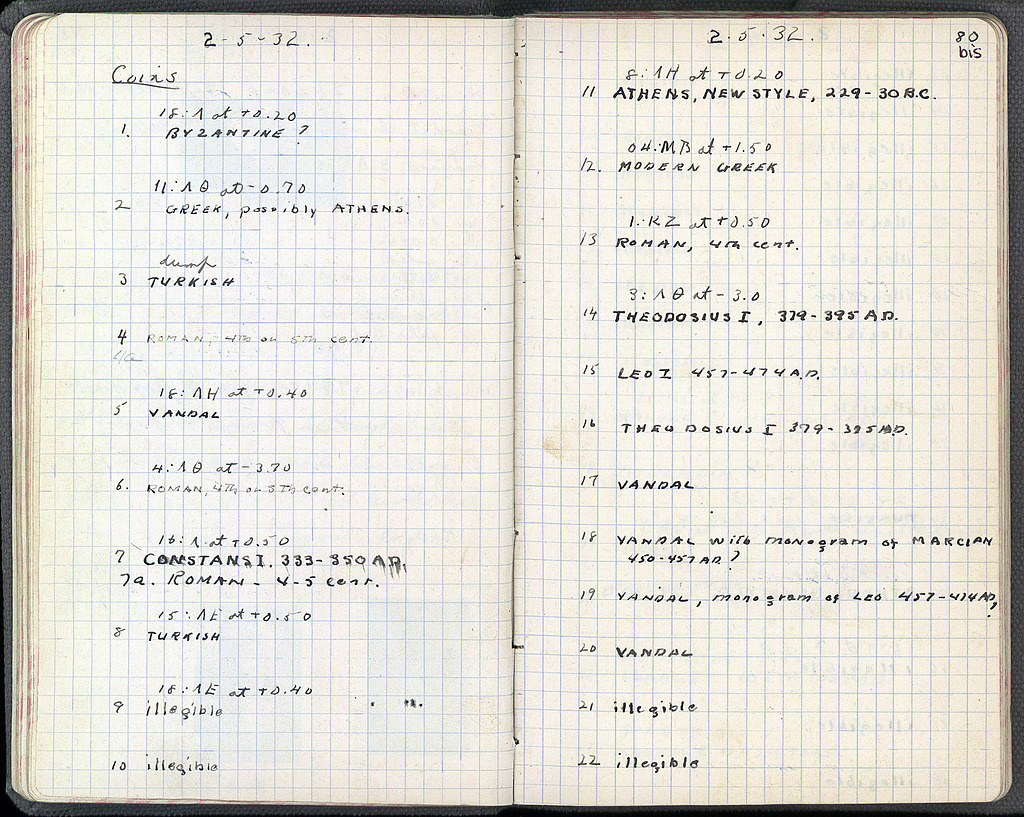 2-5-32.
Coins
18:Λ at +0.20
1. BYZANTINE ?
11:ΛΘ at -0.70
2 GREEK, possibly ATHENS.
dump
3 TURKISH
4 ROMAN, 4th or 5th cent.
4a
18:ΛH at +0.40
5 VANDAL
4:ΛΘ at -3.70
6. ROMAN, 4th or 5th cent.
16:Λ at +0.50
7 CONSTANS I. 333-350 A.D.
7a. ROMAN - 4-5 cent.
15:ΛE at +0.50
8 TURKISH
18:ΛE at +0.40
9 illegible
10 illegible
2.5.32.
80
bis
8:ΛH at +0.20
11 ATHENS, NEW STYLE, 229-30 B.C.
04:MB at +1.50
12. MODERN GREEK
1:KZ at +0.50
13 ROMAN, 4th cent.
3:ΛΘ at -3.0
14 THEODOSIUS I, 379-395 A.D.
15 LEO I 457-474 A.D.
16 THEODOSIUS I 379-395 A.D.
17 VANDAL
18 VANDAL with monogram of MARCIAN
450-457 A.D. ?
19 VANDAL, monogram of LEO 457-474 A.D.
?
20 VANDAL
21 illegible
22 illegible